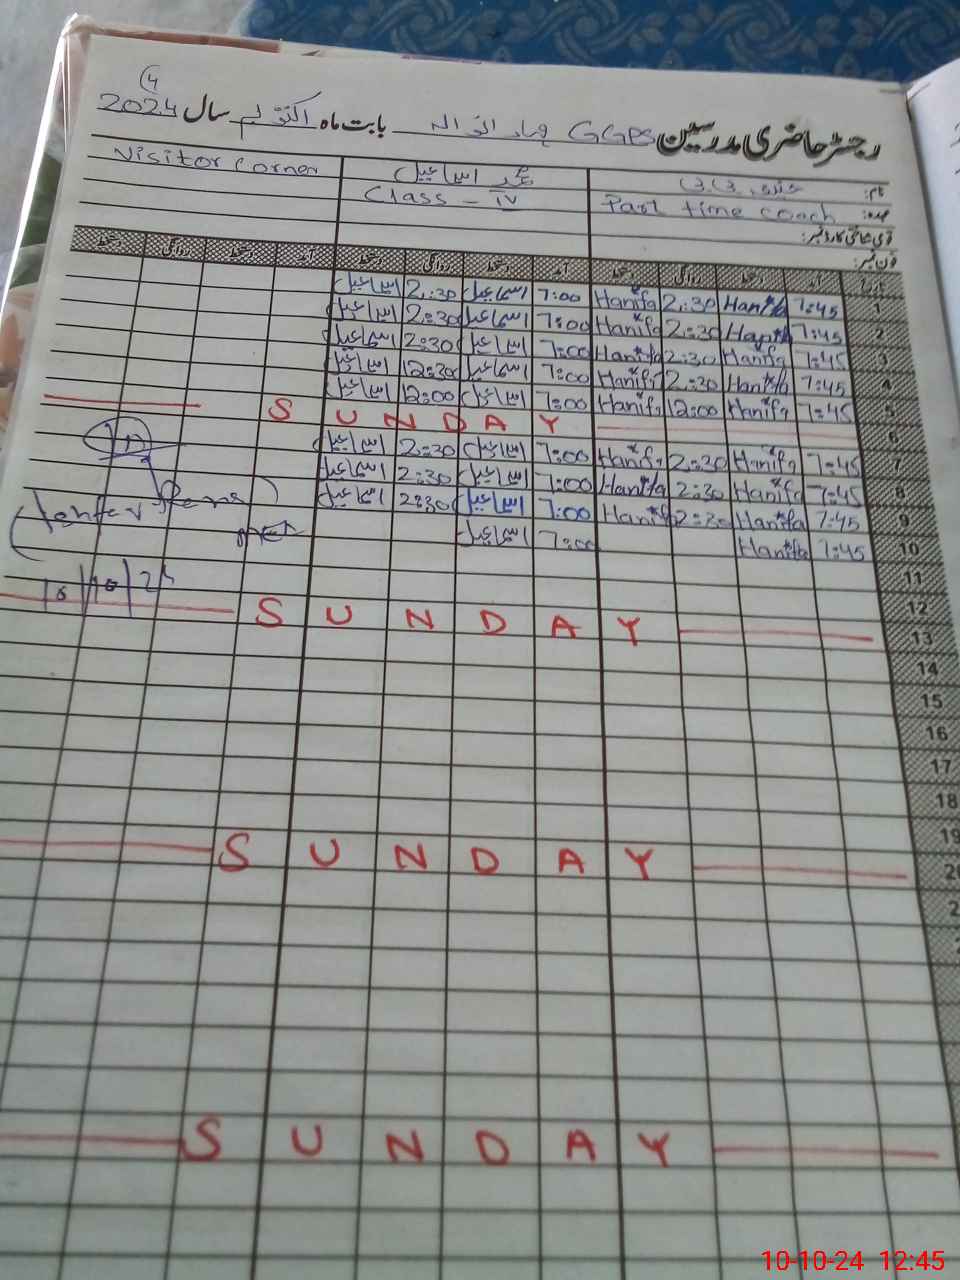 (4
رجسٹر حاضری مدرسین GGPS بابت ماہ اکتوبر سال 2024
نام: محمد اسماعیل Visitor corner
عہدہ: Part time coach Class - IV
قومی شناختی کارڈ نمبر:
فون نمبر:
تاریخ آمد دستخط روانگی دستخط آمد دستخط روانگی دستخط آمد دستخط روانگی دستخط
1 7:45 Hanifa 2:30 Hanifa 7:00 اسماعیل 2:30 اسماعیل
2 7:45 Hanifa 2:30 Hanifa 7:00 اسماعیل 2:30 اسماعیل
3 7:45 Hanifa 2:30 Hanifa 7:00 اسماعیل 2:30 اسماعیل
4 7:45 Hanifa 2:30 Hanifa 7:00 اسماعیل 12:30 اسماعیل
5 7:45 Hanifa 12:00 Hanifa 7:00 اسماعیل 12:00 اسماعیل
6 SUNDAY
7 7:45 Hanifa 2:30 Hanifa 7:00 اسماعیل 2:30 اسماعیل
8 7:45 Hanifa 2:30 Hanifa 7:00 اسماعیل 2:30 اسماعیل
9 7:45 Hanifa 2:30 Hanifa 7:00 اسماعیل 2:30 اسماعیل
10 7:45 Hanifa 7:00 اسماعیل
11
12 10/10/24
13 SUNDAY
14
15
16
17
18
19
20 SUNDAY
SUNDAY
10-10-24 12:45